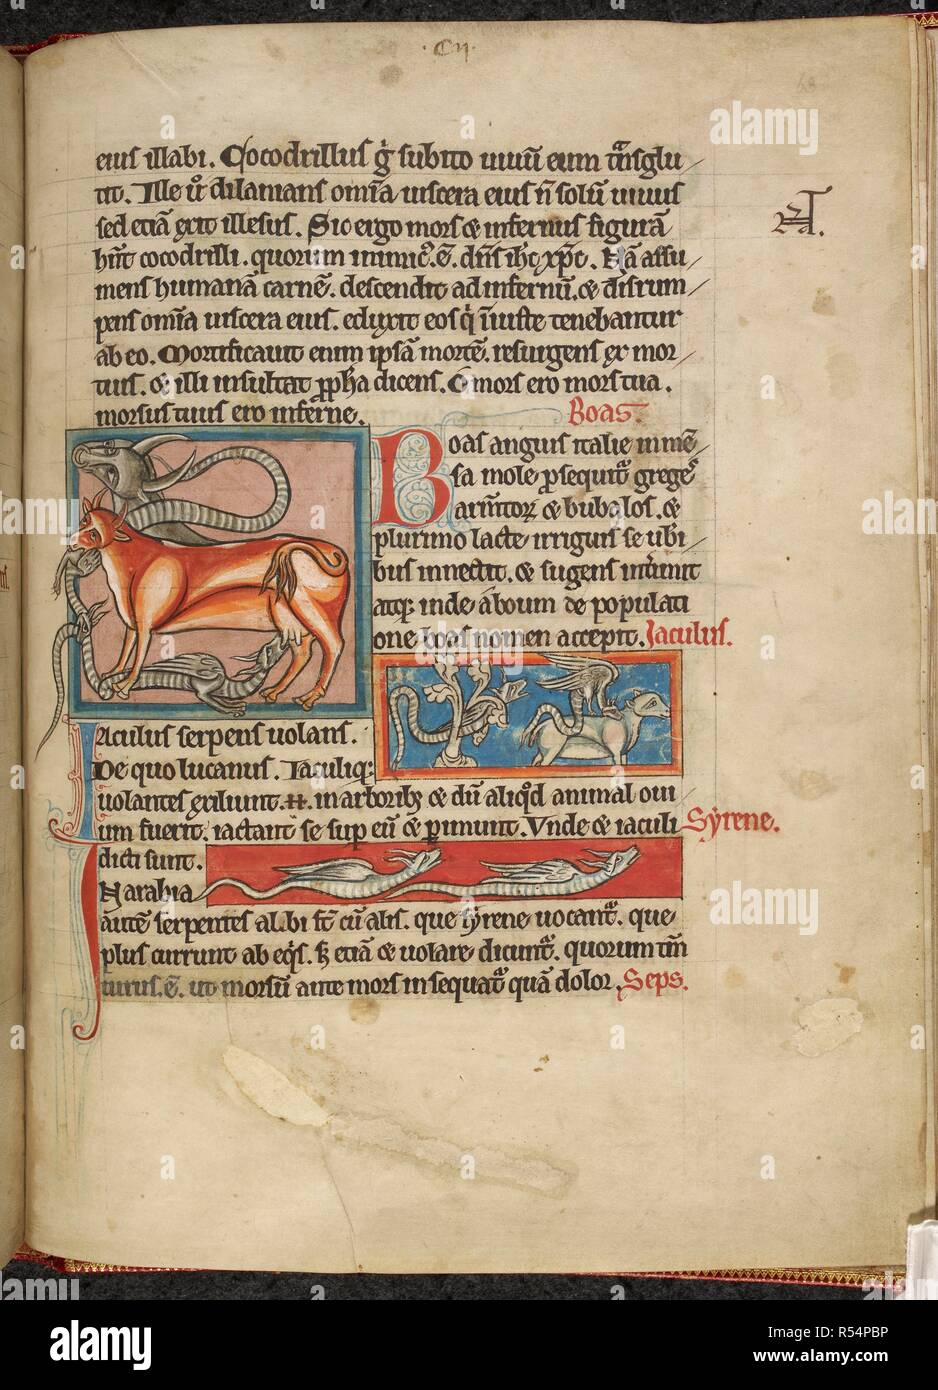 .Cij.
eius illabi. Cocodrillus g̃ subito uiuū eum t̃nsglu/
tit. Ille ũo dilanians om̃ia uiscera eius ñ solū uiuus
sed etiā exit illesus. Sic ergo mors & infernus figurā
hñt cocodrilli. quorum inimic᷒.ē. dñs ih̅c xp̅c. Nā assu/
mens humanā carnē. descendit ad infernū. & disrum/
pens om̃ia uiscera eius. eduxit eos q̇ iīuste tenebantur
ab eo. Mortificauit enim ipsā mortē. resurgens ex mor/
tuis. & illi insultat p̱ph̃a dicens. O mors ero mors tua.
morsus tuus ero inferne. Boas.
Boas anguis italie in mē/
sa mole p̱sequit᷑ greges
armtoꝝ & bubalos. &
plurimo lacte irriguis se ub̃i/
bus innectit. & sugens int̃imit
atq; inde a boum depopulati
one boas nomen accepit. Jaculus.
Iaculus serpens uolans.
De quo lucanus. Iaculiq;
uolantes exiliunt. in arborib; & dū aliq̇d animal oui/
um fuerit. iactant se sup̱ eū & p̱imunt. Vnde & iaculi Syrene.
dicti sunt.
In arabia
autē serpentes albi st̄ cū alis. que syrene uocant᷑. que
plus currunt ab eq̇s. s; etiā & uolare dicunt᷑. quorum tm̄
uirus.ē. ut morsū ante mors insequat᷑ quā dolor. Seps.
alamy
Image ID: R54PBP
www.alamy.com